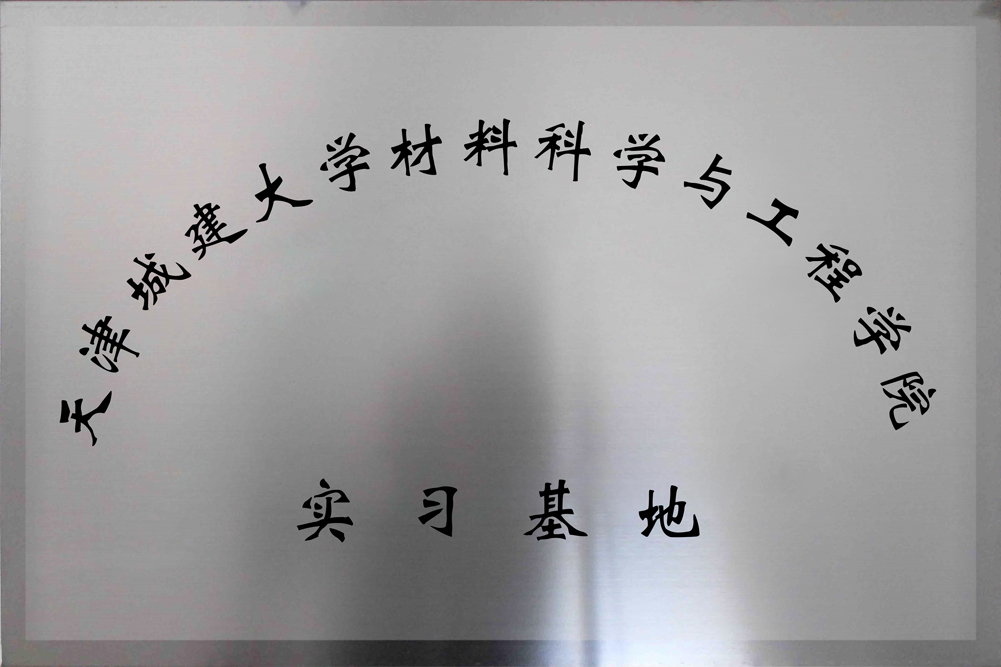 天津城建大学材料科学与工程学院
实习基地